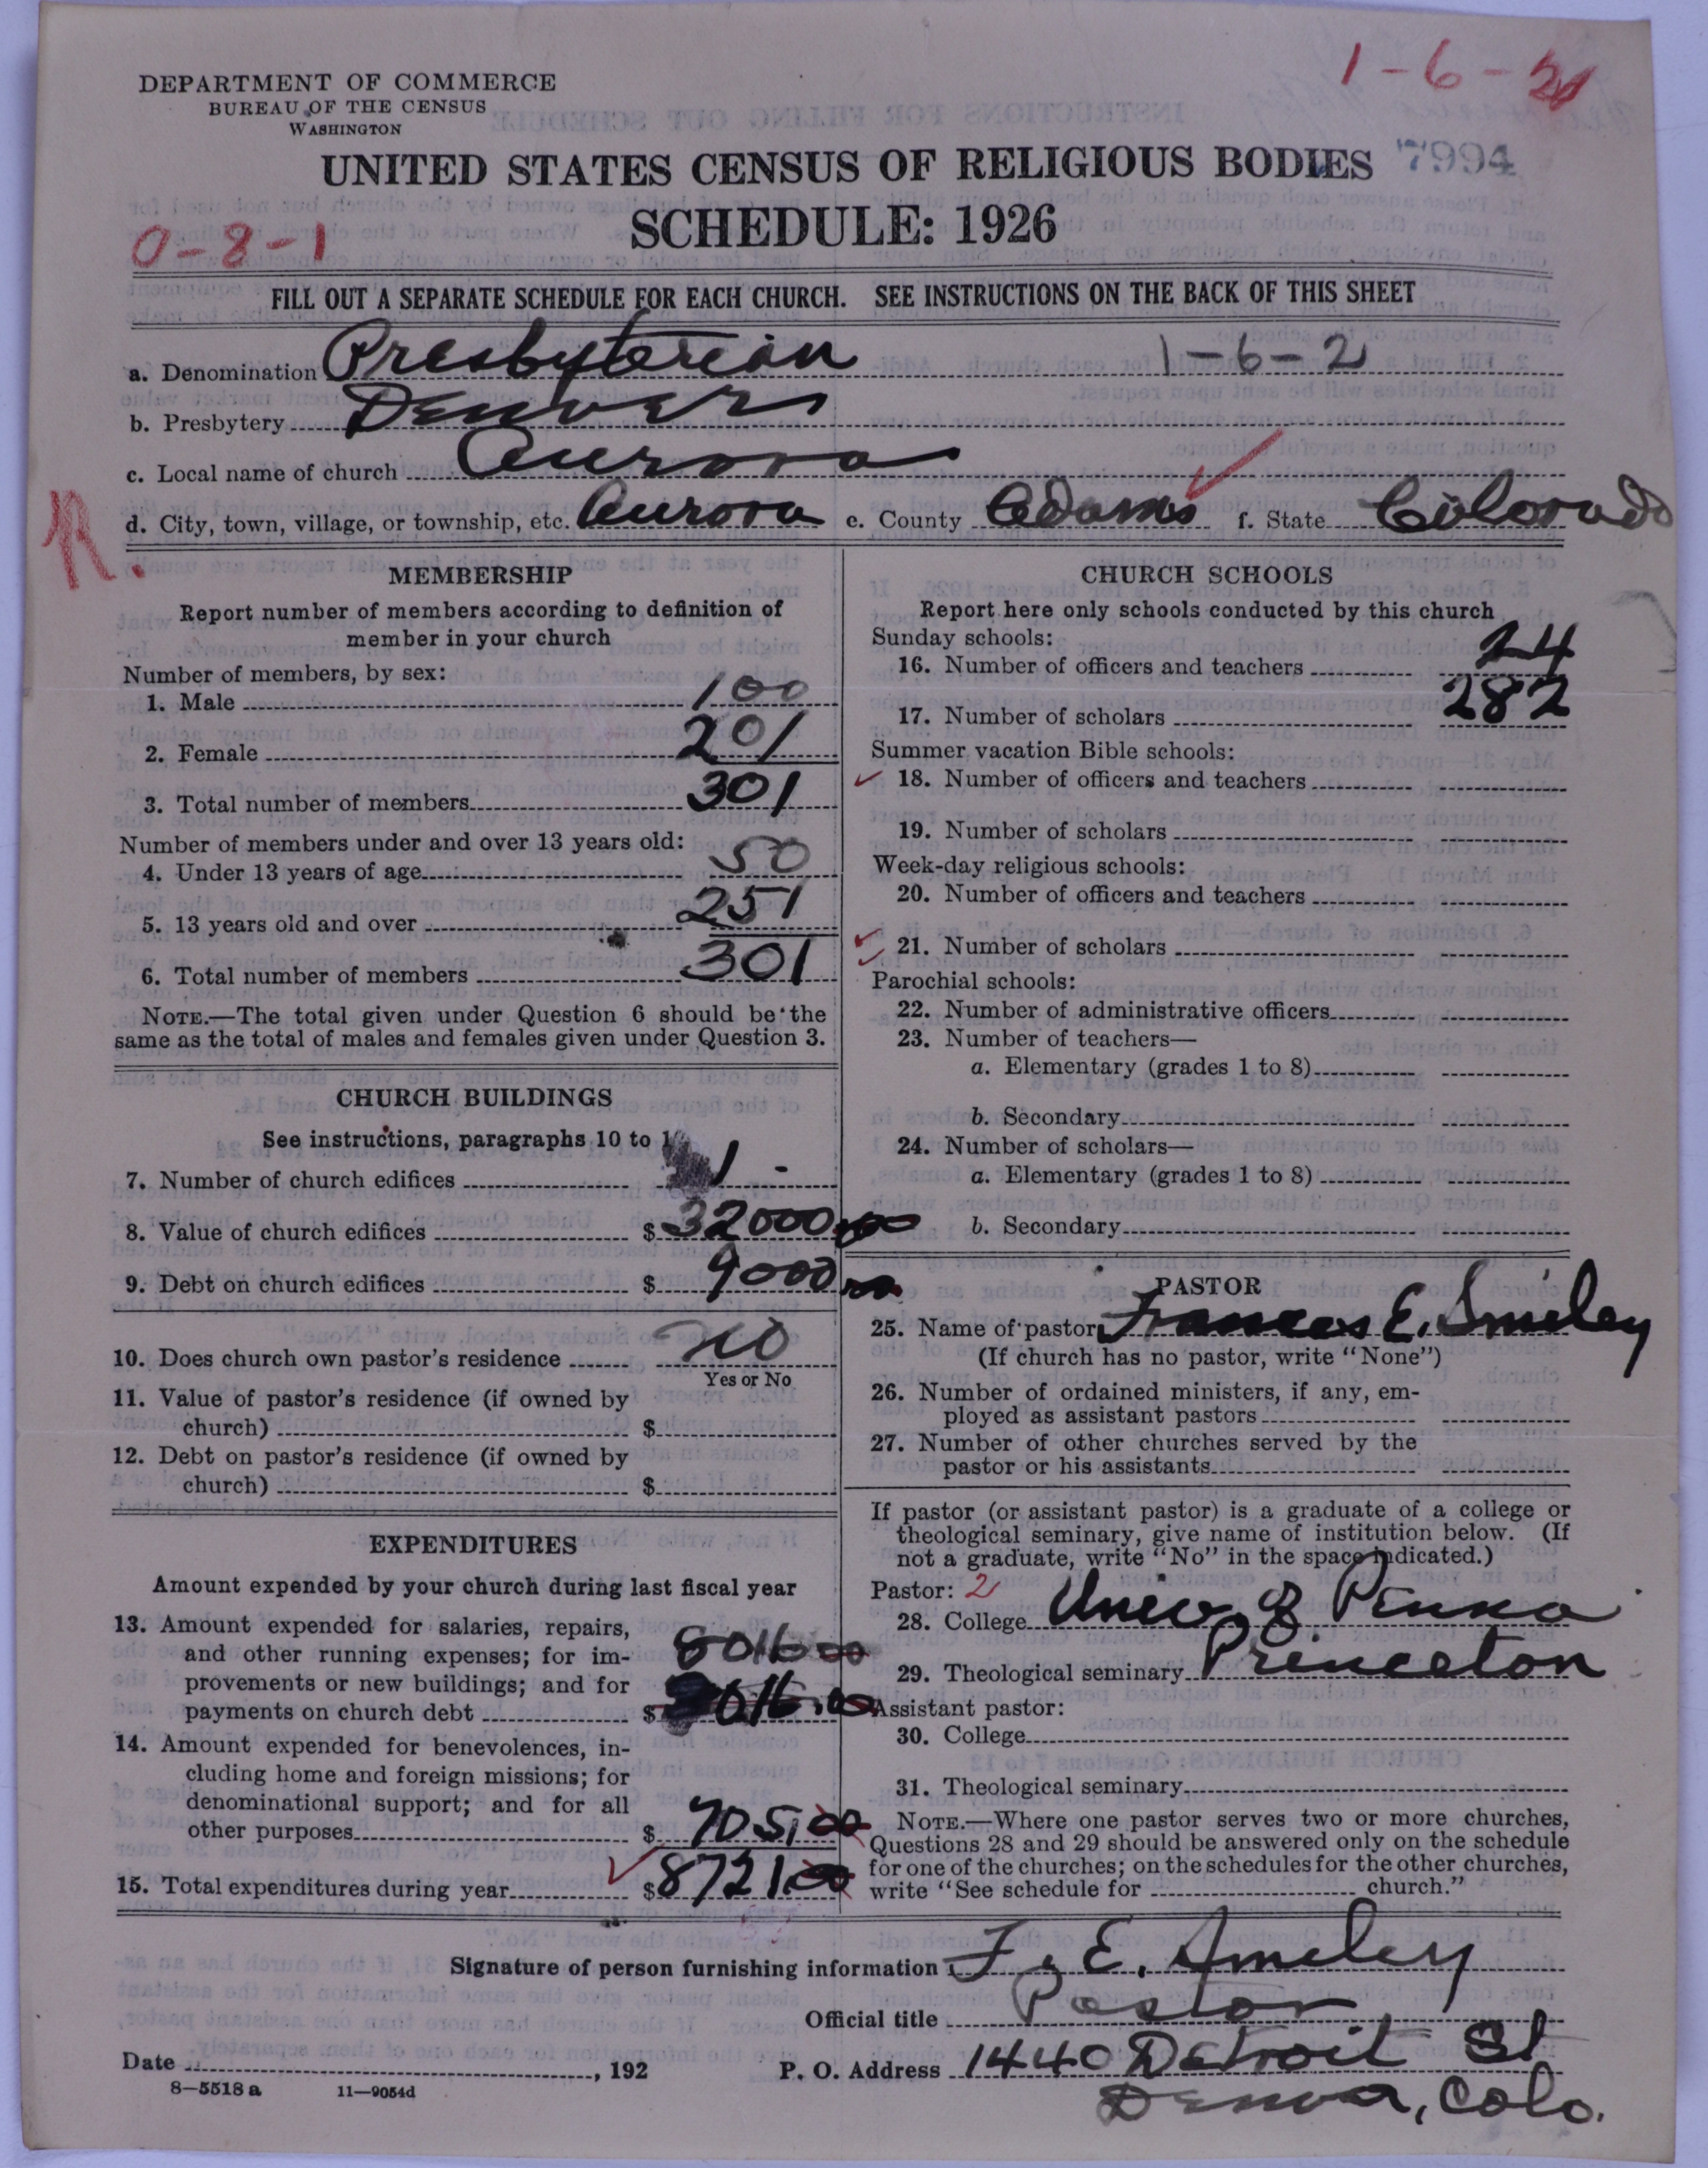 1-6-21
DEPARTMENT OF COMMERCE
BUREAU OF THE CENSUS
WASHINGTON
UNITED STATES CENSUS OF RELIGIOUS BODIES 7994
SCHEDULE: 1926
0-8-1
FILL OUT A SEPARATE SCHEDULE FOR EACH CHURCH. SEE INSTRUCTIONS ON THE BACK OF THIS SHEET
a. Denomination Presbyterian 1-6-2
b. Presbytery Denver
c. Local name of church Aurora
d. City, town, village, or township, etc. Aurora e. County Adams f. State Colorado
R.
MEMBERSHIP
Report number of members according to definition of
member in your church
Number of members, by sex:
1. Male 100
2. Female 201
3. Total number of members 301
Number of members under and over 13 years old:
4. Under 13 years of age 50
5. 13 years old and over 251
6. Total number of members 301
NOTE.—The total given under Question 6 should be the
same as the total of males and females given under Question 3.
CHURCH BUILDINGS
See instructions, paragraphs 10 to
7. Number of church edifices 1 -
8. Value of church edifices $ 32000
9. Debt on church edifices $ 9000
10. Does church own pastor's residence no
Yes or No
11. Value of pastor's residence (if owned by
church) $
12. Debt on pastor's residence (if owned by
church) $
EXPENDITURES
Amount expended by your church during last fiscal year
13. Amount expended for salaries, repairs,
and other running expenses; for im- 8016 00
provements or new buildings; and for
payments on church debt $ 016.00
14. Amount expended for benevolences, in-
cluding home and foreign missions; for
denominational support; and for all
other purposes $ 705.00
15. Total expenditures during year $ 8721.00
CHURCH SCHOOLS
Report here only schools conducted by this church
Sunday schools:
16. Number of officers and teachers 24
17. Number of scholars 282
Summer vacation Bible schools:
18. Number of officers and teachers
19. Number of scholars
Week-day religious schools:
20. Number of officers and teachers
21. Number of scholars
Parochial schools:
22. Number of administrative officers
23. Number of teachers—
a. Elementary (grades 1 to 8)
b. Secondary
24. Number of scholars—
a. Elementary (grades 1 to 8)
b. Secondary
PASTOR
25. Name of pastor Frances E. Smiley
(If church has no pastor, write "None")
26. Number of ordained ministers, if any, em-
ployed as assistant pastors
27. Number of other churches served by the
pastor or his assistants
If pastor (or assistant pastor) is a graduate of a college or
theological seminary, give name of institution below. (If
not a graduate, write "No" in the space indicated.)
Pastor: 2
28. College Univ of Penna
29. Theological seminary Princeton
Assistant pastor:
30. College
31. Theological seminary
NOTE.—Where one pastor serves two or more churches,
Questions 28 and 29 should be answered only on the schedule
for one of the churches; on the schedules for the other churches,
write "See schedule for church."
Signature of person furnishing information F. E. Smiley
Official title Pastor
Date , 192 P. O. Address 1440 Detroit St
8-5518 a 11-9054d
Denver, Colo.